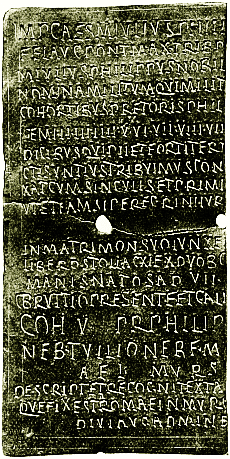 IMP CAES M IVLIVS PHILI
FEL AVG PONT MAX TRIB P
M IVLIVS PHILIPPVS NOBIL
NOMINA MILITVM QVI MILIT
COHORTIBVS PRETORIS PHIL
V VI VII VIII VIIII
QVI PIE ET FORTITER
CTI SVNT IVS TRIBVIMVS CON
XAT CVM SINGVLIS ET PRIMI
VT ETIAM SI PEREGRINI IVR
IN MATRIMON SVO IVNXE
LIBEROS TOLLAC EX DVOB
MANIS NATOS A D VII
BRVTTIO PRESENTE ET C ALL
COH V PR PHILIP
NEB TVLLIO NERE M
F AEL MVRS
DESCRIPT ET RECOGNIT EX TA
QVE FIX EST ROMAE IN MVR P
DIVI AVG AD MINE